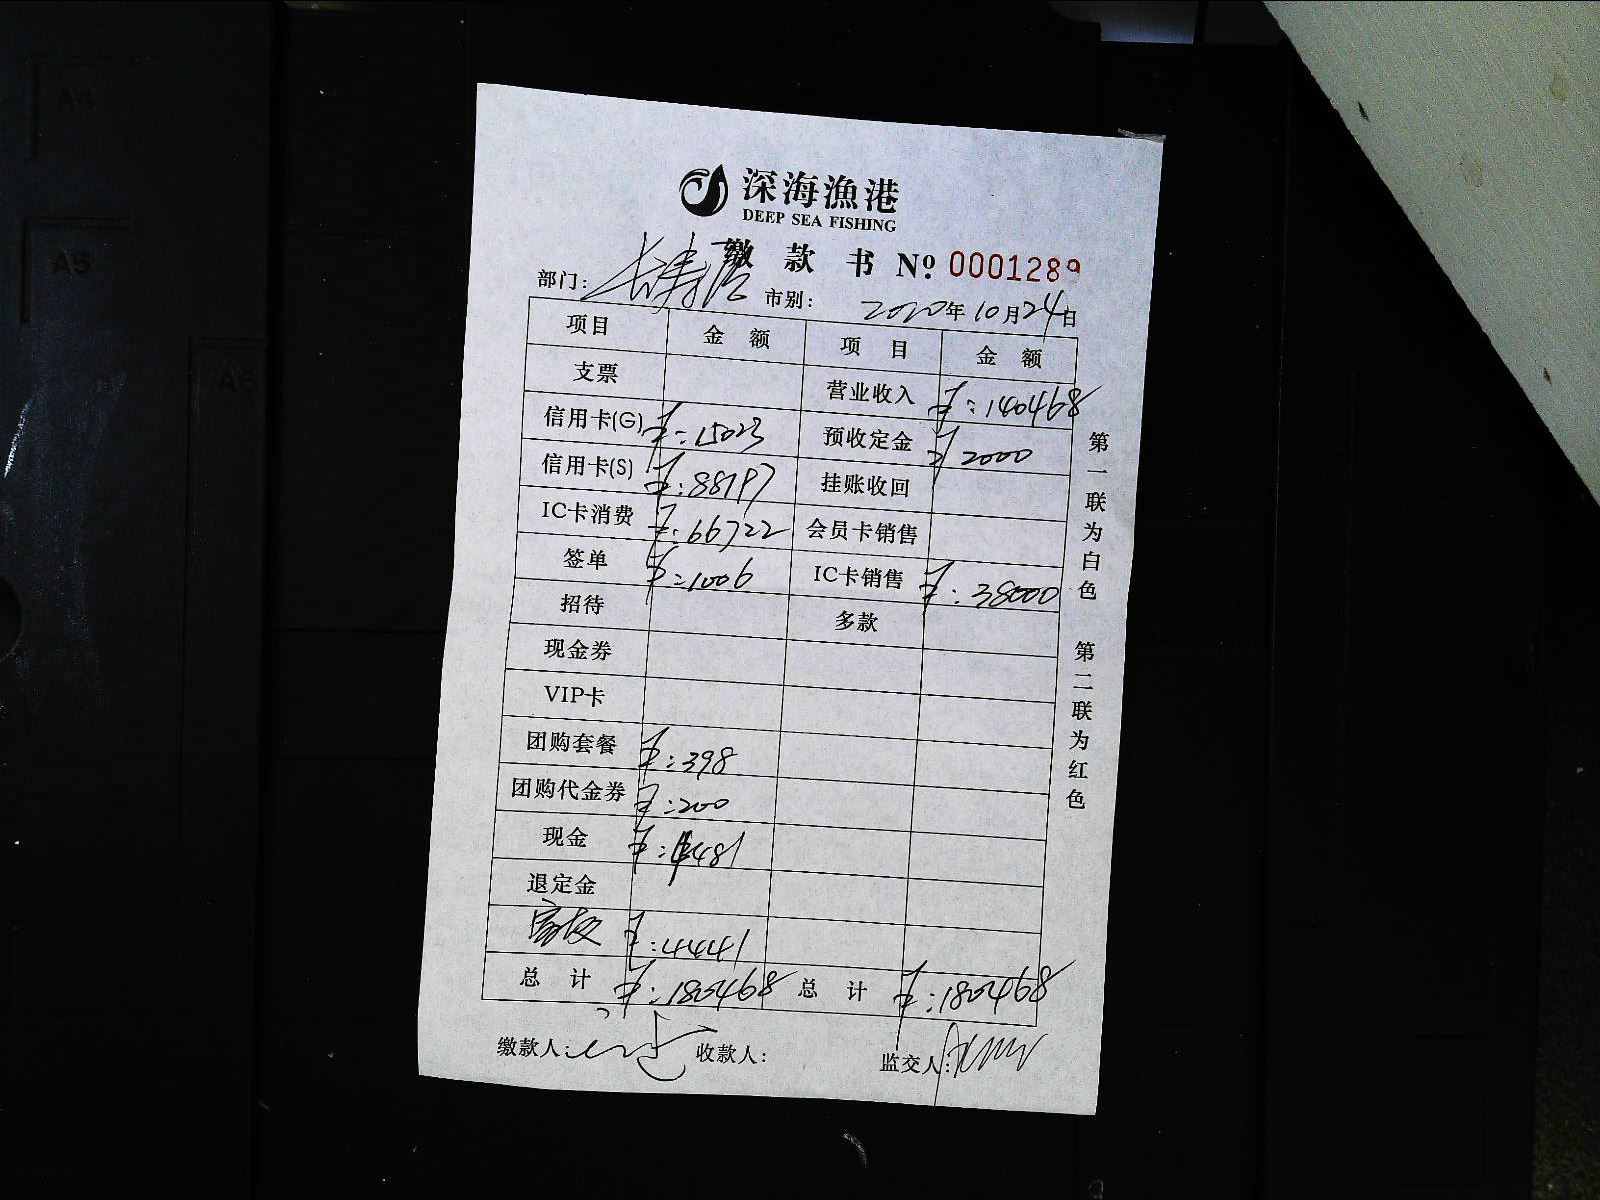 深海漁港
DEEP SEA FISHING
缴 款 书 Nº 0001289
部门: 市别: 2020年10月24日
项目 金 额 项 目 金 额
支票 营业收入 ¥:140468
信用卡(G) ¥:15023 预收定金 ¥2000
信用卡(S) ¥:88197 挂账收回
IC卡消费 ¥:66722 会员卡销售
签单 ¥:1006 IC卡销售 ¥:38000
招待 多款
现金券
VIP卡
团购套餐 ¥:398
团购代金券 ¥:200
现金 ¥:4481
退定金
¥:4441
总 计 ¥:180468 总 计 ¥:180468
缴款人: 收款人: 监交人:
第一联为白色 第二联为红色